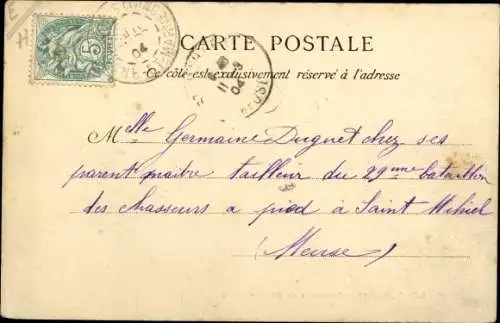 CARTE POSTALE
Ce côté est exclusivement réservé à l'adresse
Mlle Germaine Duguet chez ses
parent maitre tailleur du 29eme bataillon
des chasseurs a pied à Saint Mihiel
(Meuse)